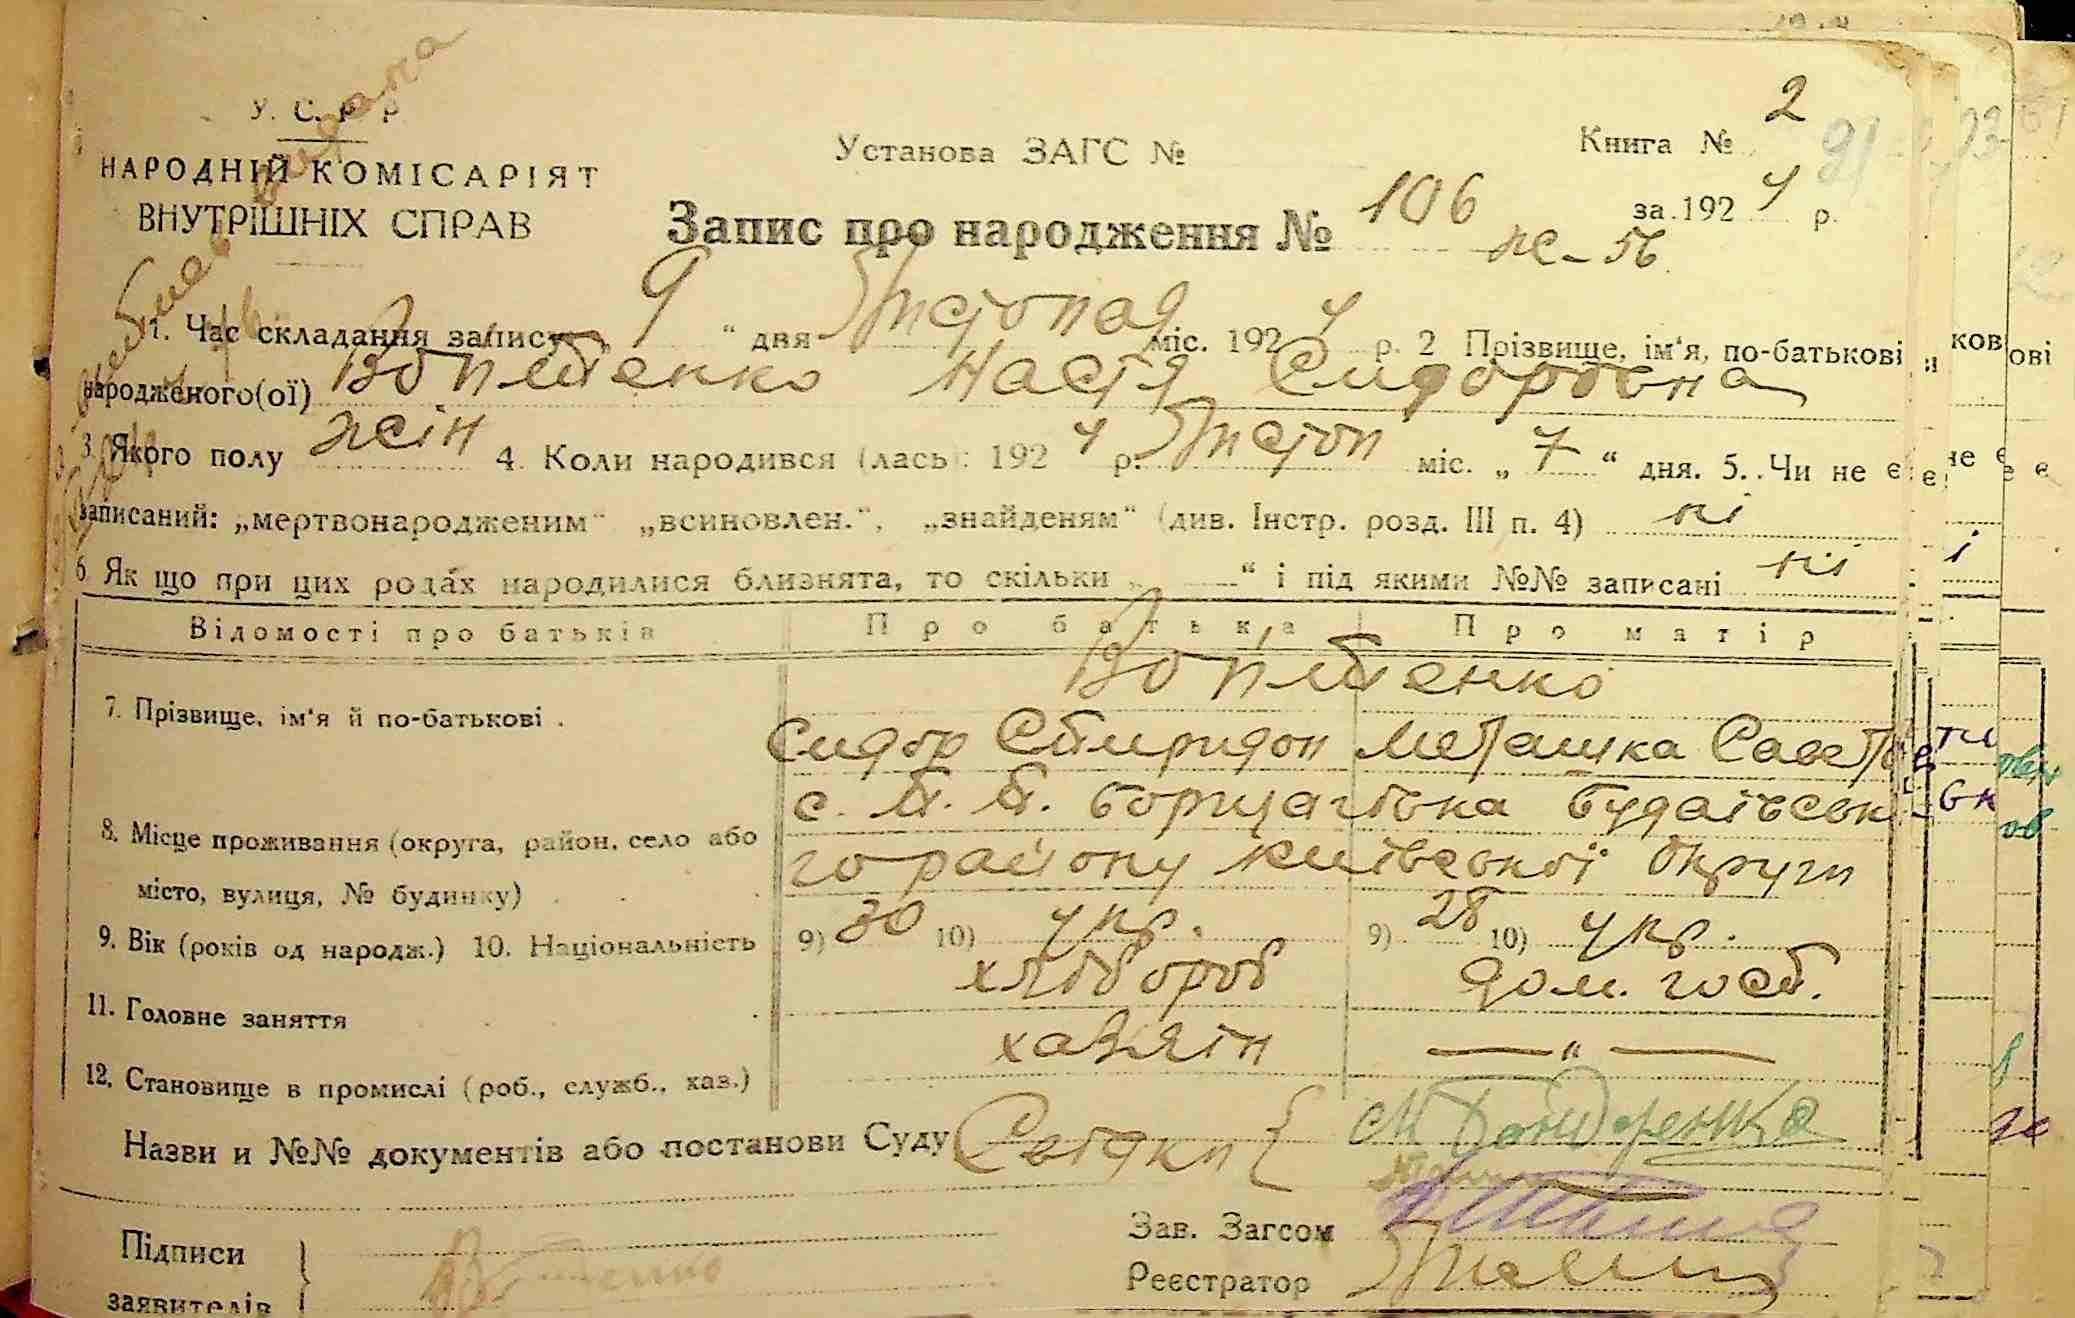 У. С. Р. Р.
НАРОДНІЙ КОМІСАРІЯТ
ВНУТРІШНІХ СПРАВ
Установа ЗАГС №
Книга № 2
за 1924 р.
Запис про народження № 106
ж-56
1. Час складання запису „9“ дня Жстопад міс. 1924 р. 2 Прізвище, ім‘я, по-батькові
народженого(ої) Настя Сидоровна
3. Якого полу жін 4. Коли народився (лась): 1924 р. міс. „7“ дня. 5. Чи не є
записаний: „мертвонародженим“ „всиновлен.“, „знайденям“ (див. Інстр. розд. III п. 4) ні
6. Як що при цих родах народилися близнята, то скільки „—“ і під якими №№ записані ні
Відомості про батьків Про батька Про матір
7. Прізвище, ім‘я й по-батькові.
Сидор Спиридон
с. П. П. Борщагівка Будаївсько
8. Місце проживання (округа, район, село або
го району Київської Округи
місто, вулиця, № будинку)
9. Вік (років од народж.) 10. Національність 9) 30 10) укр. 9) 28 10) укр.
11. Головне заняття хлібороб дом. госп.
12. Становище в промислі (роб., служб., хаз.) хазяїн — „ —
Назви и №№ документів або постанови Суду Свідки { М Бондаренко
Підписи
заявителів
Зав. Загсом
Реєстратор